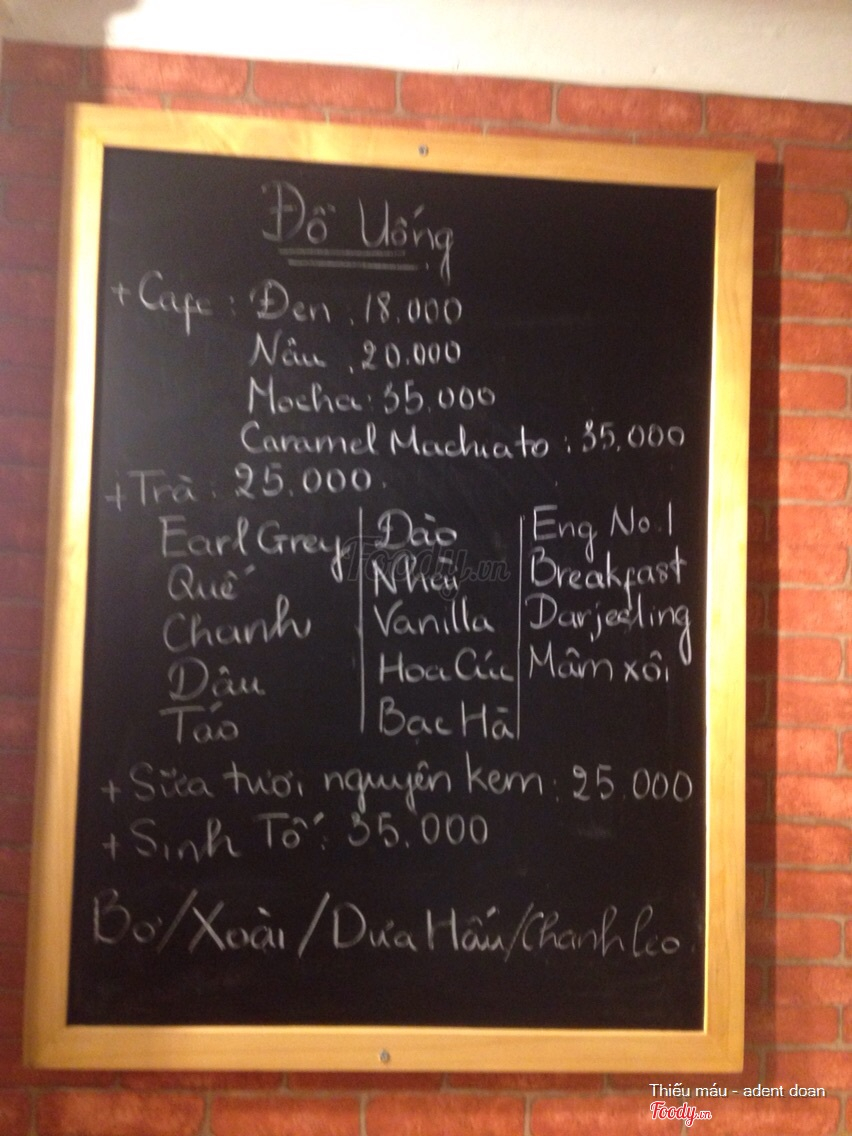 Đồ Uống
+ Cafe : Đen . 18.000
Nâu . 20.000
Mocha : 35.000
Caramel Machiato : 35.000
+ Trà : 25.000.
Earl Grey
Quế
Chanh
Dâu
Táo
Đào
Nhài
Vanilla
Hoa Cúc
Bạc Hà
Eng No.1
Breakfast
Darjeeling
Mâm xôi
+ Sữa tươi nguyên kem : 25.000
+ Sinh Tố : 35.000
Bơ/Xoài/Dưa Hấu/Chanh leo
Foody.vn
Thiếu máu - adent doan
Foody.vn